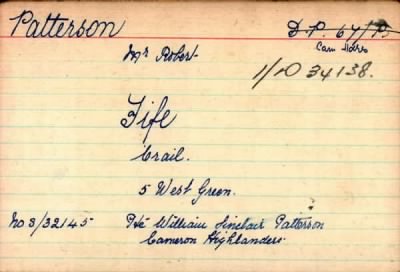 Patterson
D.P. 64/P
Cam Hdrs
Mr Robert
1/10 34138.
Fife
Crail.
5 West Green.
No S/32145 Pte William Sinclair Patterson
Cameron Highlanders